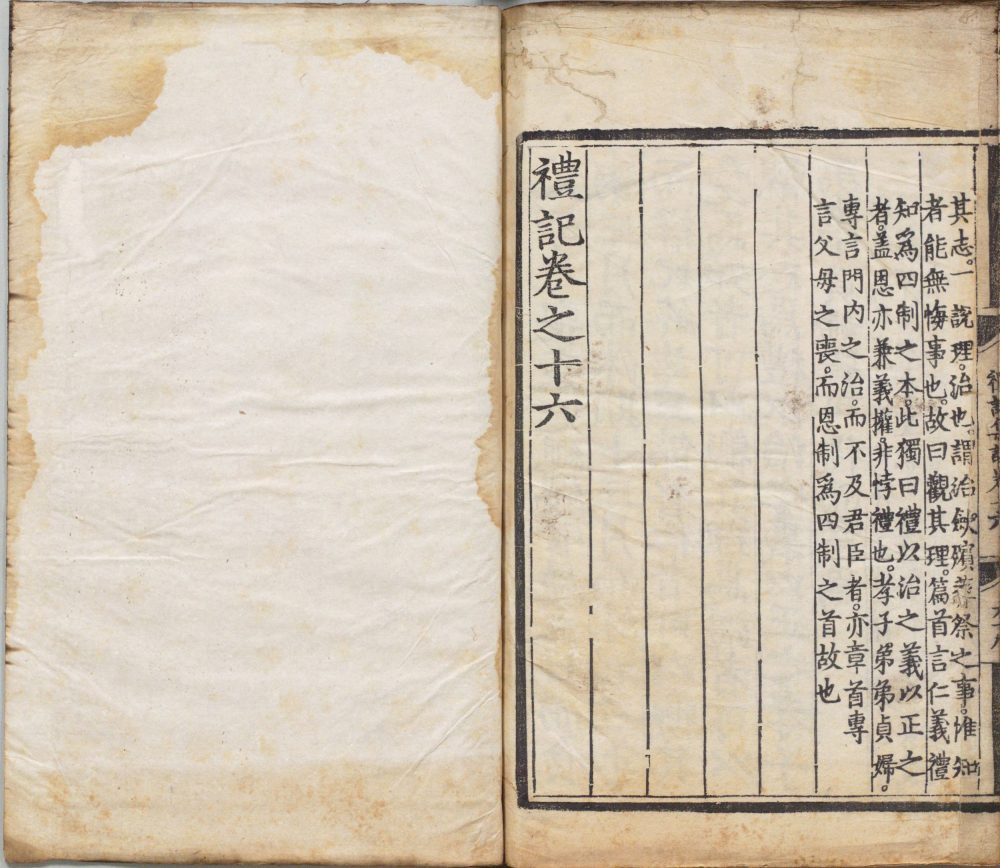 其志。一說。理。治也。謂治斂殯葬祭之事。惟知
者能無悔事也。故曰觀其理。篇首言仁義禮
知爲四制之本。此獨曰禮以治之義以正之
者。盖恩亦兼義。權非悖禮也。孝子弟弟貞婦。
專言門內之治。而不及君臣者。亦章首專
言父母之喪。而恩制爲四制之首故也
禮記卷之十六